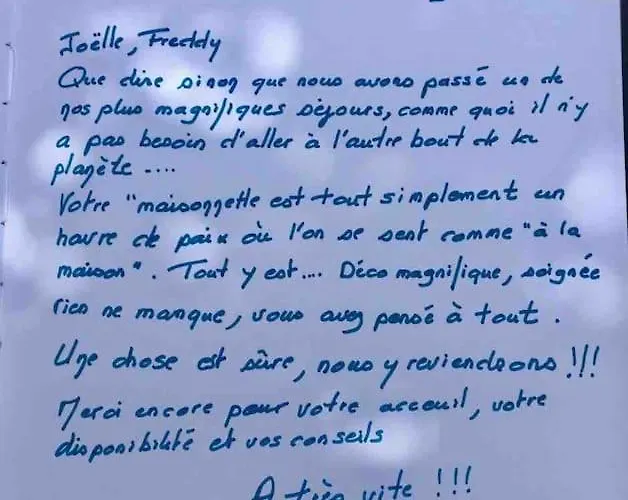 Joëlle, Freddy
Que dire sinon que nous avons passé un de
nos plus magnifiques séjours, comme quoi il n'y
a pas besoin d'aller à l'autre bout de la
planète ....
Votre "maisonnette est tout simplement un
havre de paix où l'on se sent comme "à la
maison". Tout y est.... Déco magnifique, soignée
rien ne manque, vous avez pensé à tout.
Une chose est sûre, nous y reviendrons !!!
Merci encore pour votre acceuil, votre
disponibilité et vos conseils
A très vite !!!